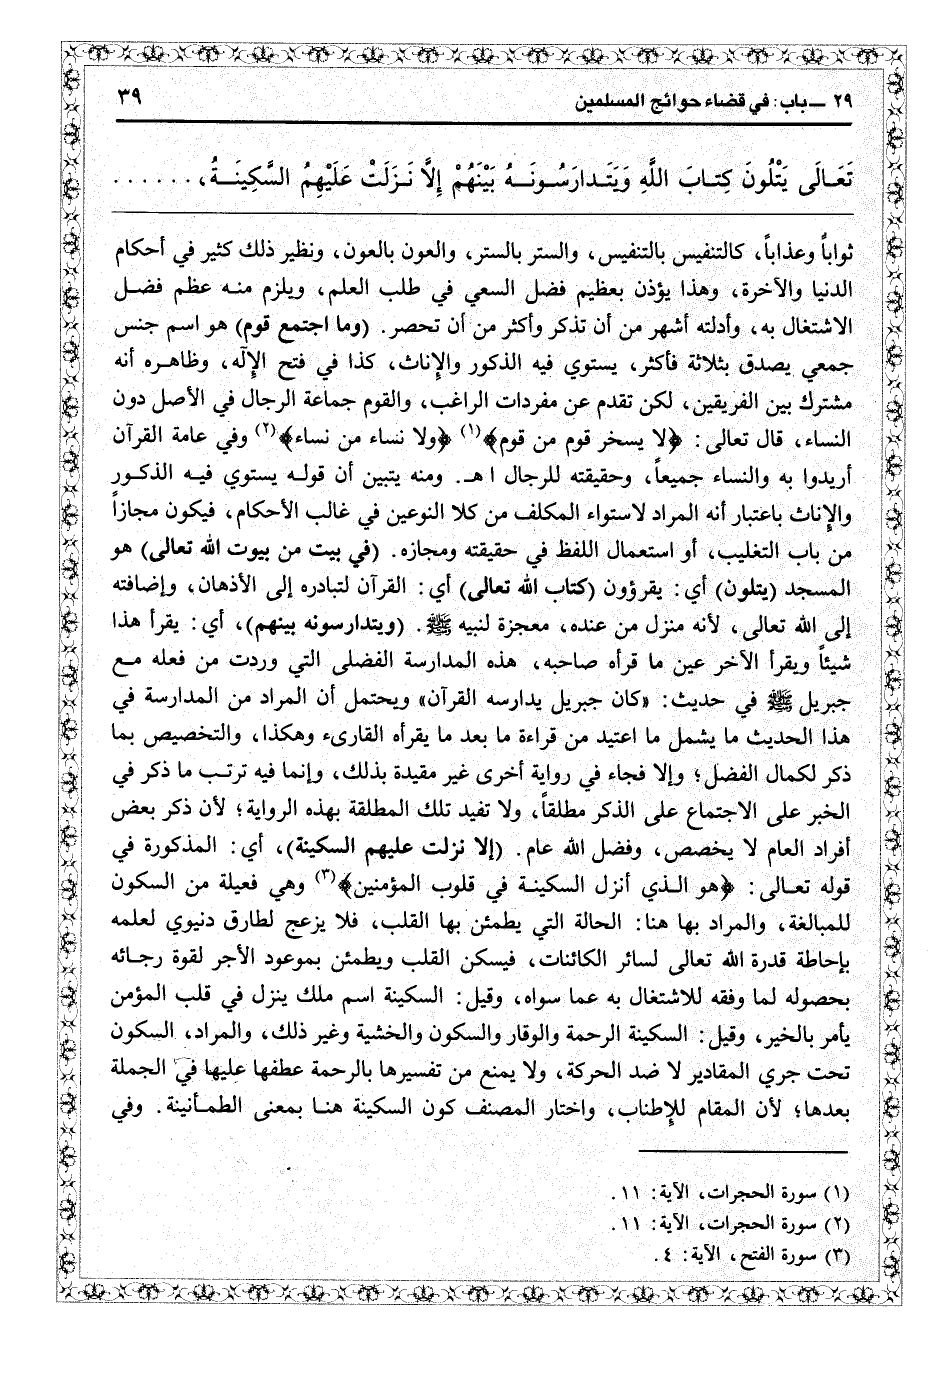 ٢٩ ـ باب: في قضاء حوائج المسلمين
٣٩
تَعَالَى يَتْلُونَ كِتَابَ اللَّهِ وَيَتَدارَسُونَهُ بَيْنَهُمْ إِلَّا نَزَلَتْ عَلَيْهِمُ السَّكِينَةُ، ......
ثواباً وعذاباً، كالتنفيس بالتنفيس، والستر بالستر، والعون بالعون، ونظير ذلك كثير في أحكام
الدنيا والآخرة، وهذا يؤذن بعظيم فضل السعي في طلب العلم، ويلزم منه عظم فضل
الاشتغال به، وأدلته أشهر من أن تذكر وأكثر من أن تحصر. (وما اجتمع قوم) هو اسم جنس
جمعي يصدق بثلاثة فأكثر، يستوي فيه الذكور والإناث، كذا في فتح الإلٰه، وظاهره أنه
مشترك بين الفريقين، لكن تقدم عن مفردات الراغب، والقوم جماعة الرجال في الأصل دون
النساء، قال تعالى: ﴿لا يسخر قوم من قوم﴾(١) ﴿ولا نساء من نساء﴾(٢) وفي عامة القرآن
أريدوا به والنساء جميعاً، وحقيقته للرجال اهـ. ومنه يتبين أن قوله يستوي فيه الذكور
والإناث باعتبار أنه المراد لاستواء المكلف من كلا النوعين في غالب الأحكام، فيكون مجازاً
من باب التغليب، أو استعمال اللفظ في حقيقته ومجازه. (في بيت من بيوت الله تعالى) هو
المسجد (يتلون) أي: يقرؤون (كتاب الله تعالى) أي: القرآن لتبادره إلى الأذهان، وإضافته
إلى الله تعالى، لأنه منزل من عنده، معجزة لنبيه ﷺ. (ويتدارسونه بينهم)، أي: يقرأ هذا
شيئاً ويقرأ الآخر عين ما قرأه صاحبه، هذه المدارسة الفضلى التي وردت من فعله مع
جبريل ﷺ في حديث: «كان جبريل يدارسه القرآن» ويحتمل أن المراد من المدارسة في
هذا الحديث ما يشمل ما اعتيد من قراءة ما بعد ما يقرأه القارىء وهكذا، والتخصيص بما
ذكر لكمال الفضل؛ وإلا فجاء في رواية أخرى غير مقيدة بذلك، وإنما فيه ترتب ما ذكر في
الخبر على الاجتماع على الذكر مطلقاً، ولا تفيد تلك المطلقة بهذه الرواية؛ لأن ذكر بعض
أفراد العام لا يخصص، وفضل الله عام. (إلا نزلت عليهم السكينة)، أي: المذكورة في
قوله تعالى: ﴿هو الذي أنزل السكينة في قلوب المؤمنين﴾(٣) وهي فعيلة من السكون
للمبالغة، والمراد بها هنا: الحالة التي يطمئن بها القلب، فلا يزعج لطارق دنيوي لعلمه
بإحاطة قدرة الله تعالى لسائر الكائنات، فيسكن القلب ويطمئن بموعود الأجر لقوة رجائه
بحصوله لما وفقه للاشتغال به عما سواه، وقيل: السكينة اسم ملك ينزل في قلب المؤمن
يأمر بالخير، وقيل: السكينة الرحمة والوقار والسكون والخشية وغير ذلك، والمراد، السكون
تحت جري المقادير لا ضد الحركة، ولا يمنع من تفسيرها بالرحمة عطفها عليها في الجملة
بعدها؛ لأن المقام للإطناب، واختار المصنف كون السكينة هنا بمعنى الطمأنينة. وفي
(١) سورة الحجرات، الآية: ١١.
(٢) سورة الحجرات، الآية: ١١.
(٣) سورة الفتح، الآية: ٤.